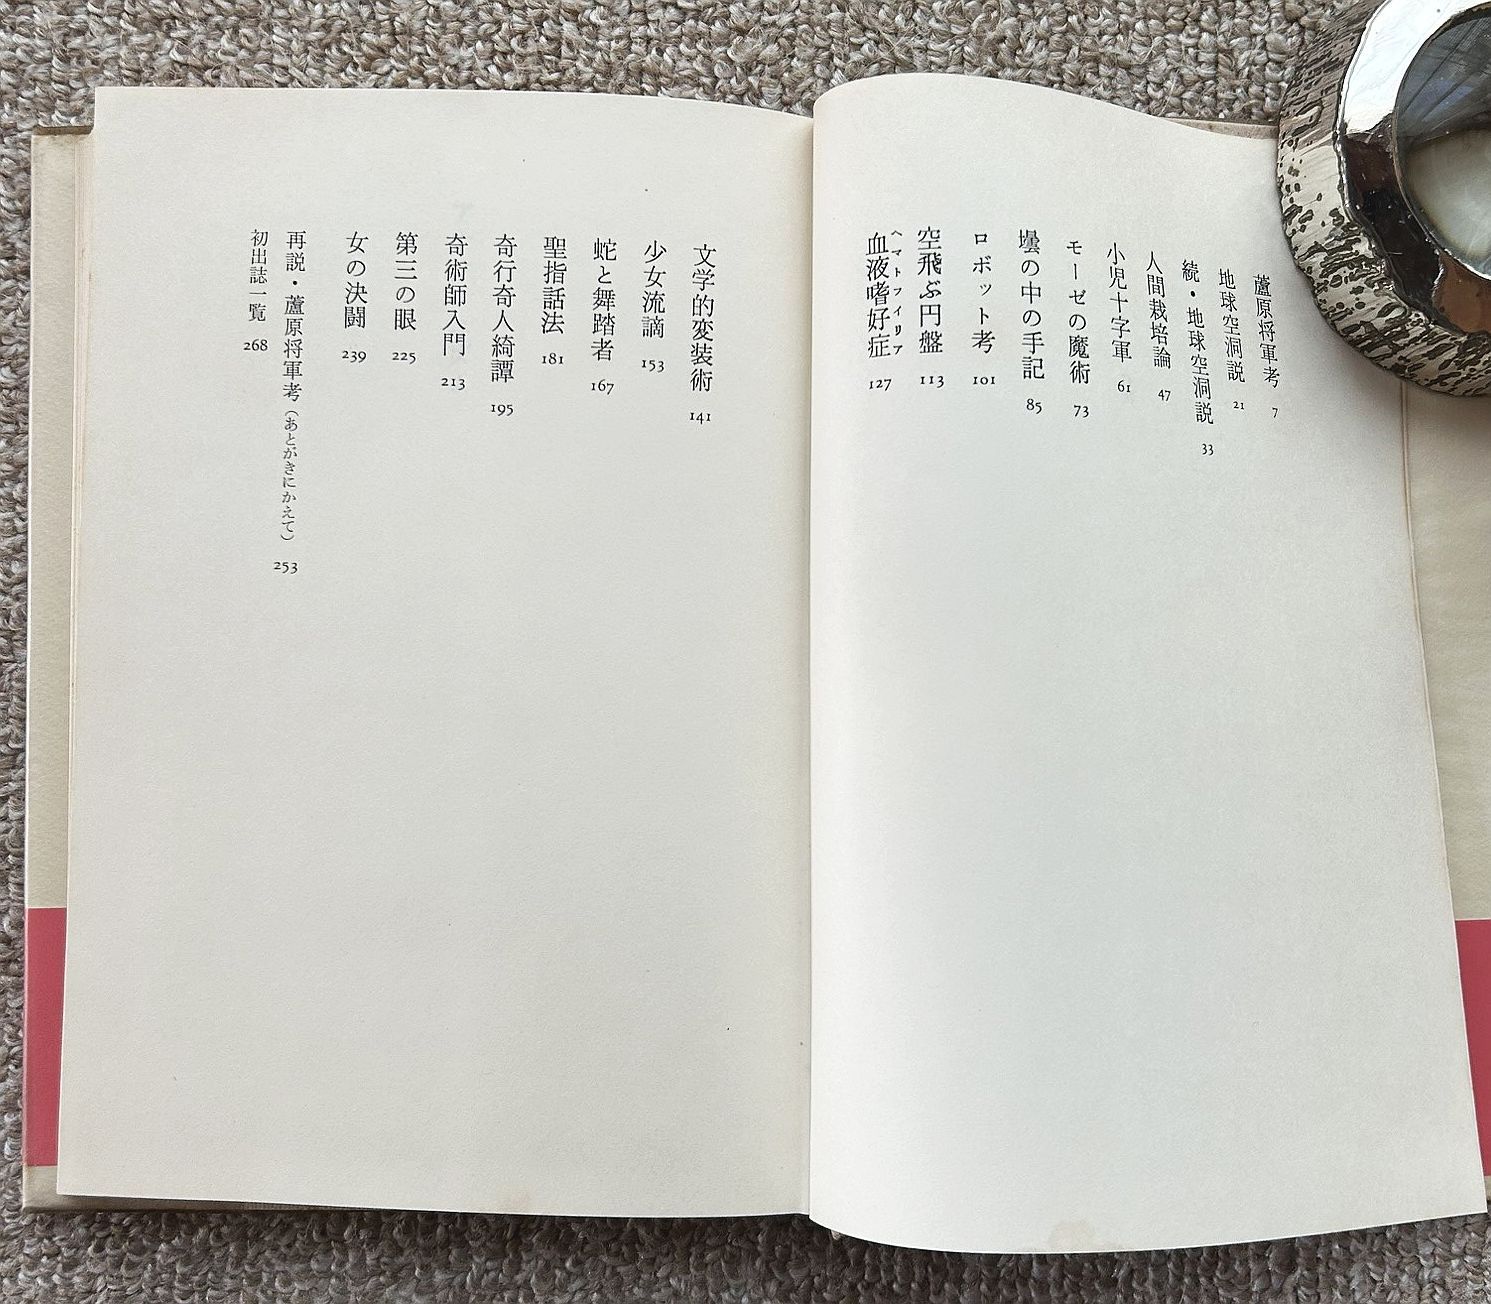 蘆原将軍考 7
地球空洞説 21
続・地球空洞説 33
人間栽培論 47
小児十字軍 61
モーゼの魔術 73
壜の中の手記 85
ロボット考 101
空飛ぶ円盤 113
ヘマトフィリア
血液嗜好症 127
文学的変装術 141
少女流謫 153
蛇と舞踏者 167
聖指話法 181
奇行奇人綺譚 195
奇術師入門 213
第三の眼 225
女の決闘 239
再説・蘆原将軍考（あとがきにかえて） 253
初出誌一覧 268